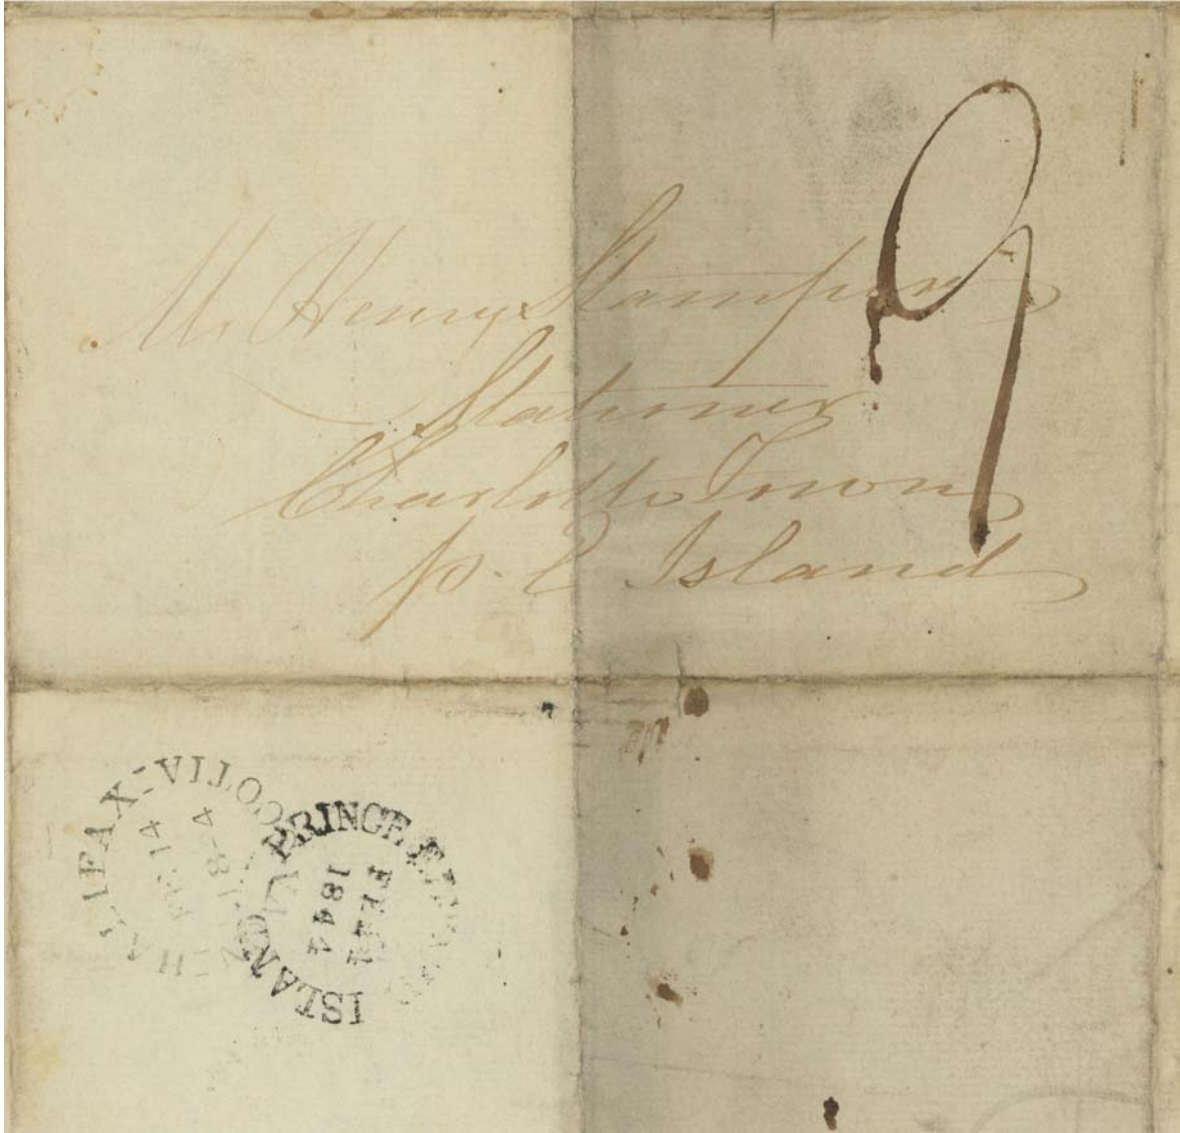 9
Mr Henry Stamper
Stationer
Charlotte Town
p. E Island
HALIFAX
PRINCE EDWARD
ISLAND
1844